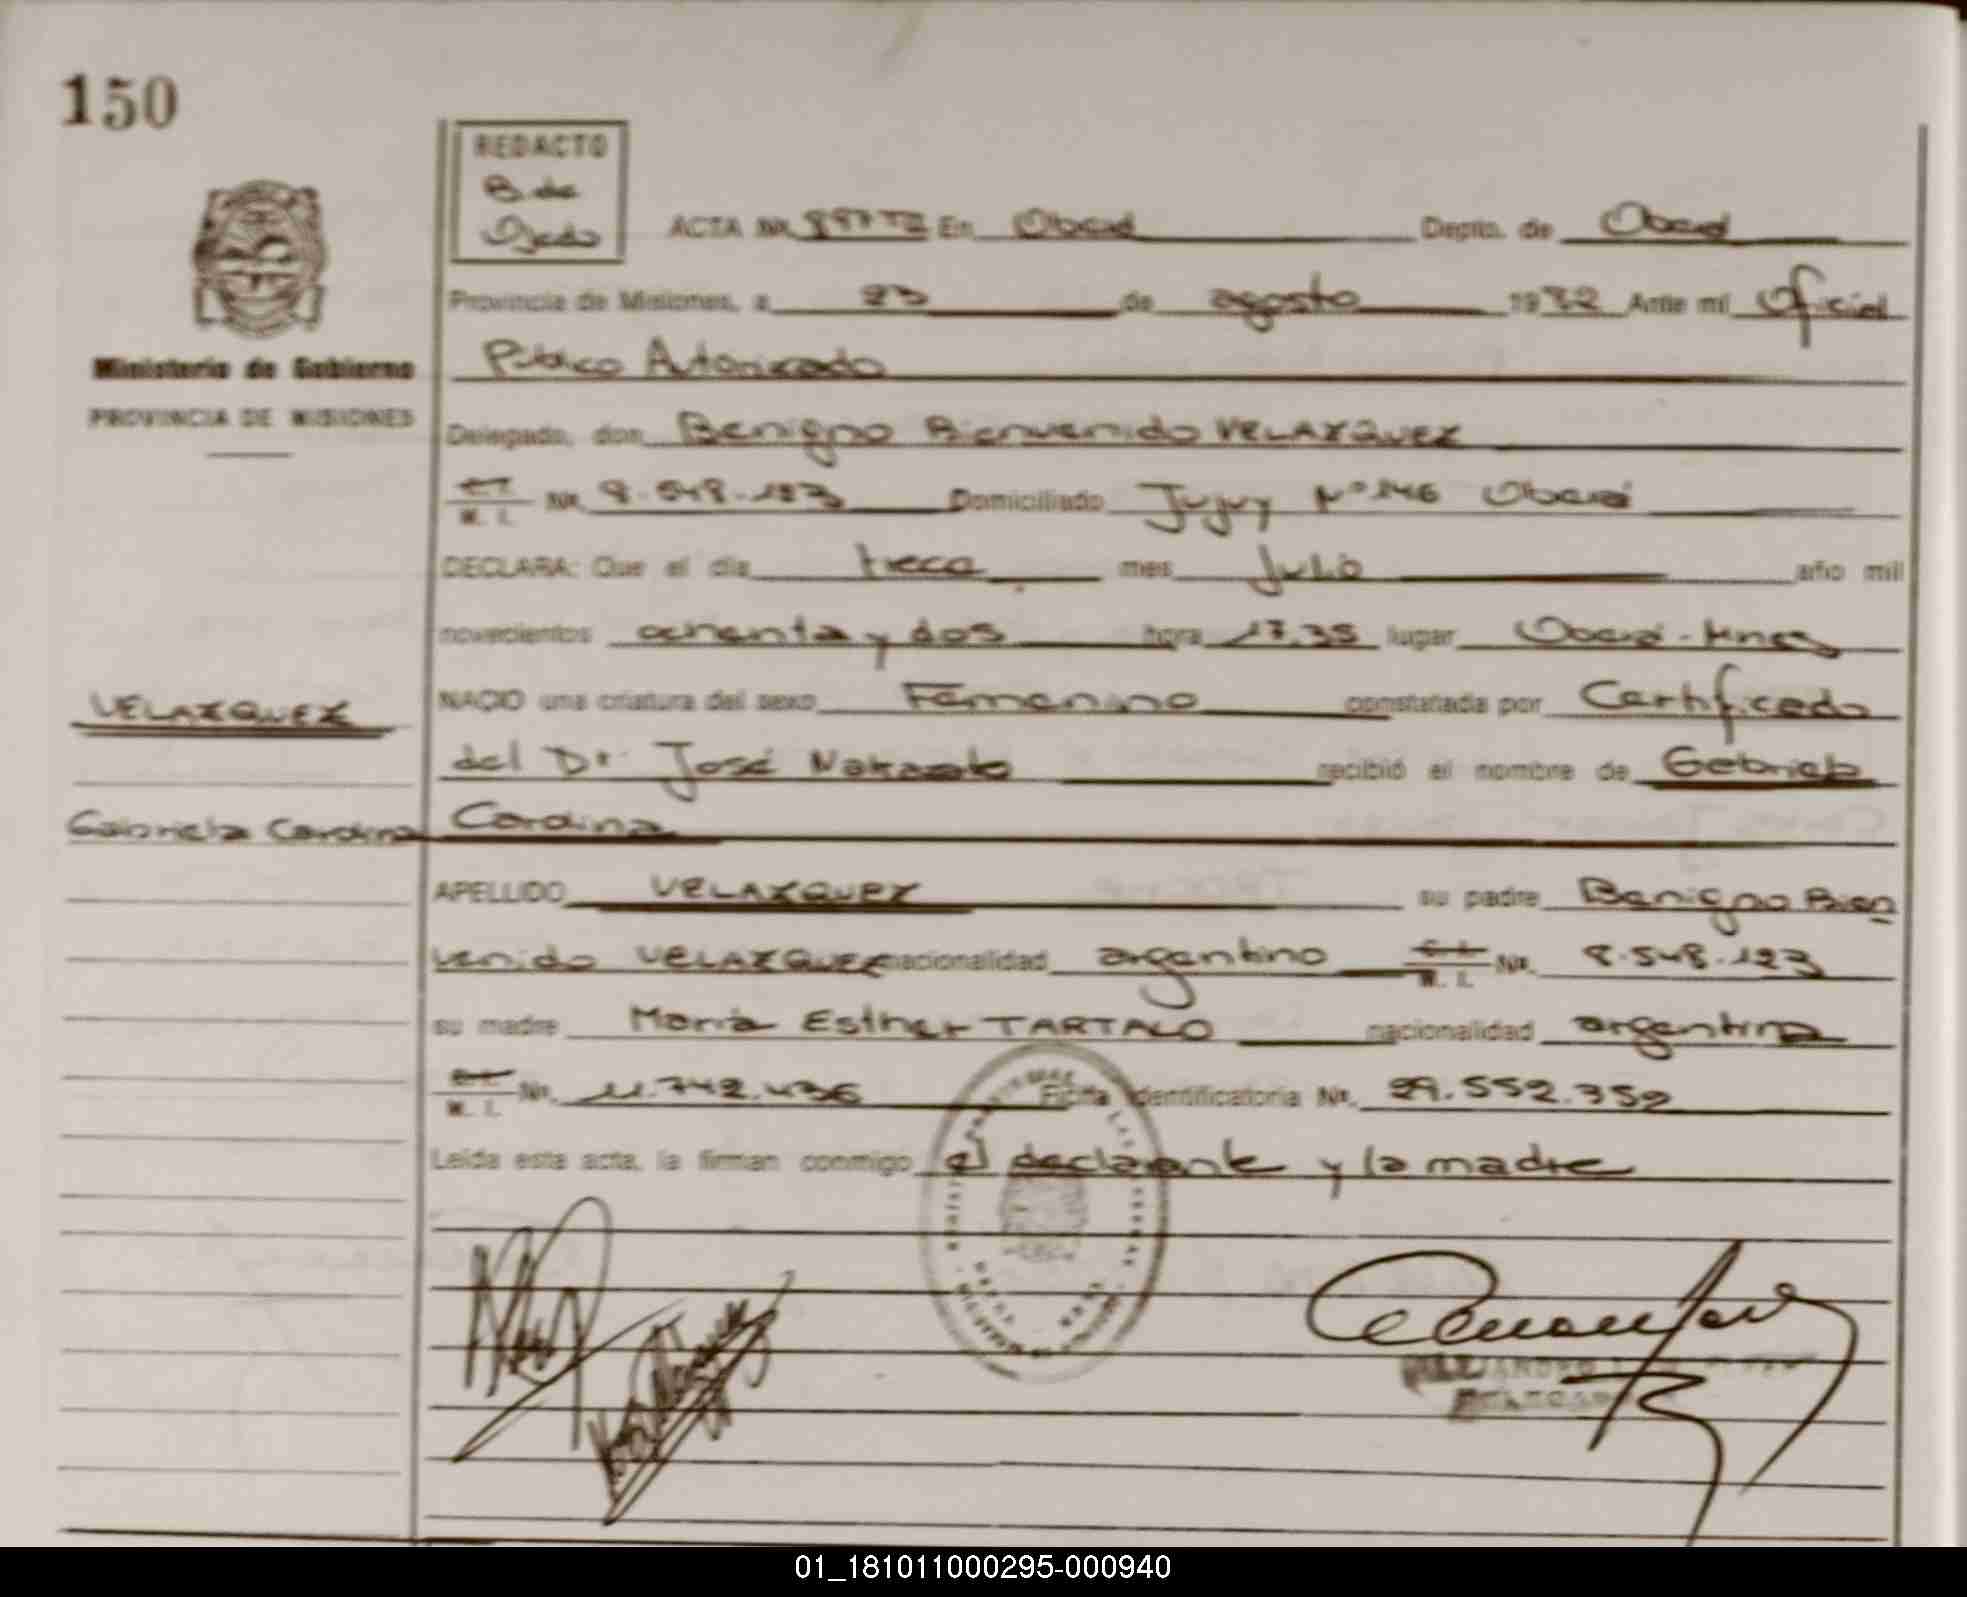 150
REDACTO
B. de
Ojeda
ACTA Nº En Oberá Depto. de Oberá
Provincia de Misiones, a 23 de agosto 1982 Ante mi Oficial
Público Autorizado
Ministerio de Gobierno
PROVINCIA DE MISIONES
Delegado, don Benigno Bienvenido VELAZQUEZ
M. I. Nº 8.548.123 Domiciliado Jujuy Nº 146 Oberá
DECLARA: Que el día trece mes Julio año mil
novecientos ochenta y dos hora 17,35 lugar Oberá - Mnes
NACIO una criatura del sexo Femenino constatada por Certificado
VELAZQUEZ
del Dr. José recibió el nombre de Gabriela
Gabriela Carolina Carolina
APELLIDO VELAZQUEZ su padre Benigno Bien
venido VELAZQUEZ nacionalidad argentino M. I. Nº. 8.548.123
su madre María Esther TARTALO nacionalidad argentina
M. I. Nº. 11.742.436 Ficha Identificatoria Nº. 29.552.352
Leída esta acta, la firman conmigo el declarante y la madre
01_181011000295-000940